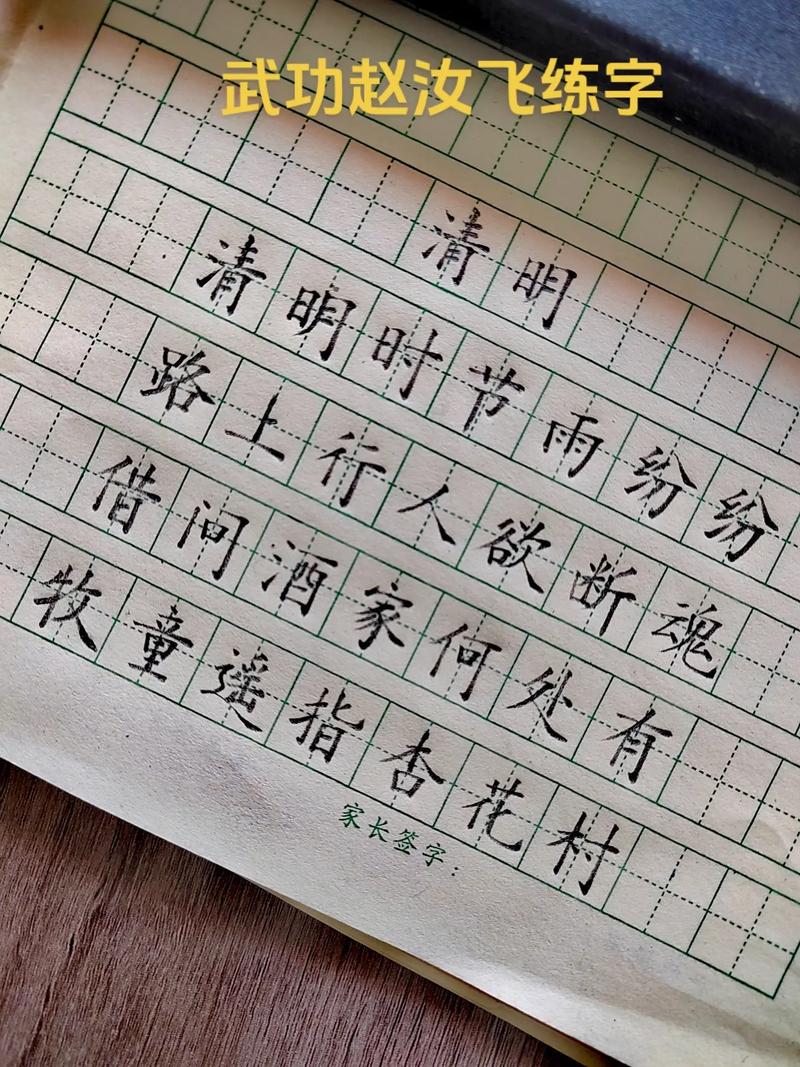 武功赵汝飞练字
清明
清明时节雨纷纷
路上行人欲断魂
借问酒家何处有
牧童遥指杏花村
家长签字：